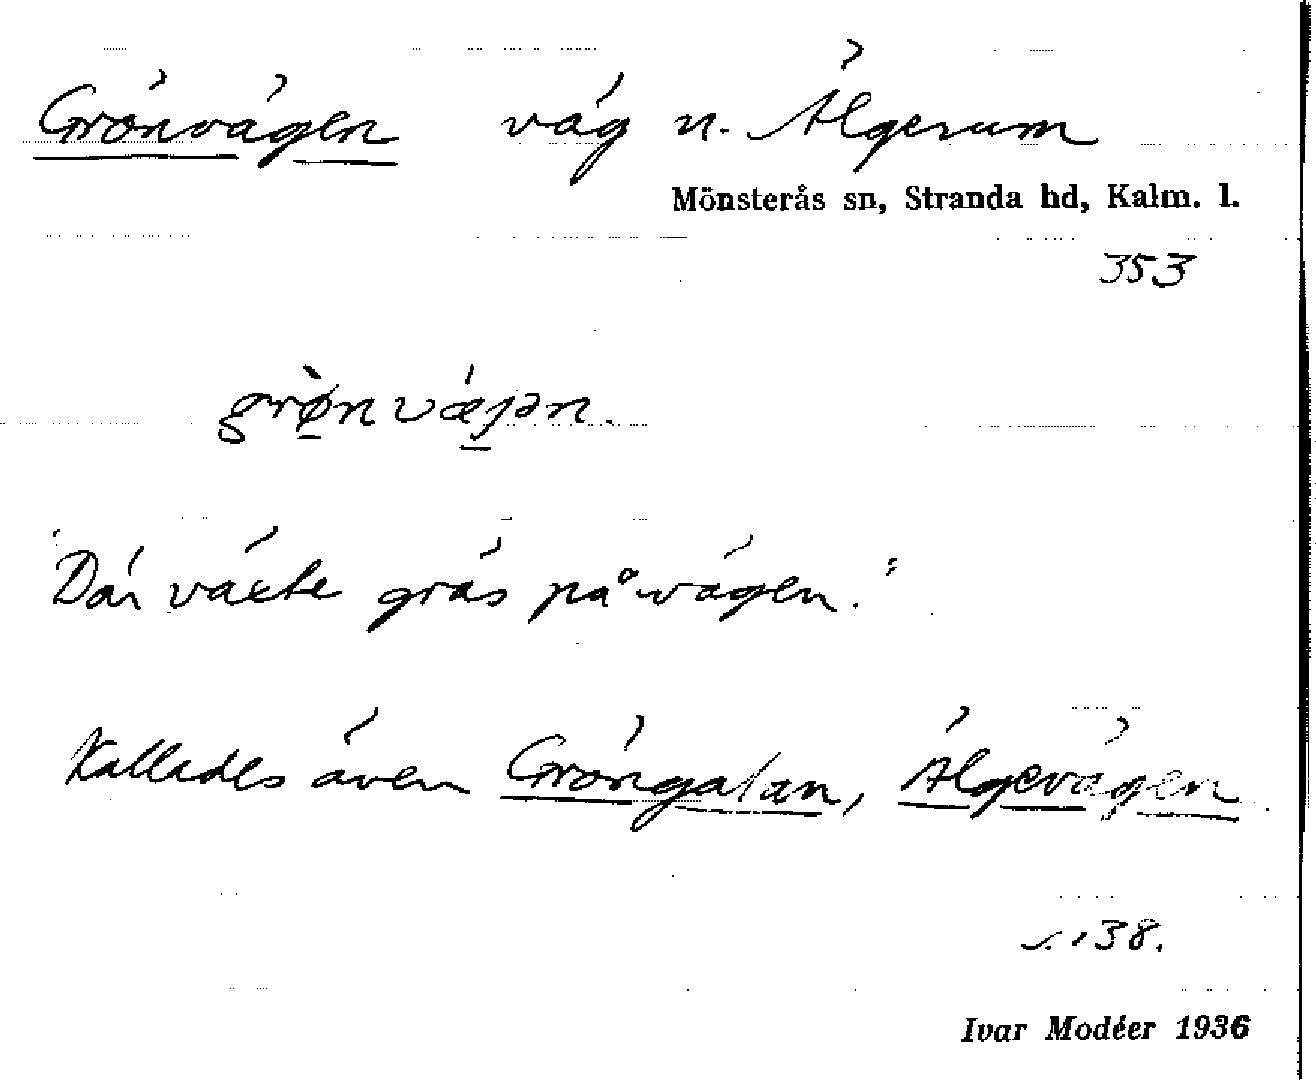 Grönvägen väg n. Älgerum
Mönsterås sn, Stranda hd, Kalm. l.
353
grø̀nvǽjən.
"Där växte gräs på vägen."
Kallades även Gröngatan, Älgevägen.
s. 138.
Ivar Modéer 1936